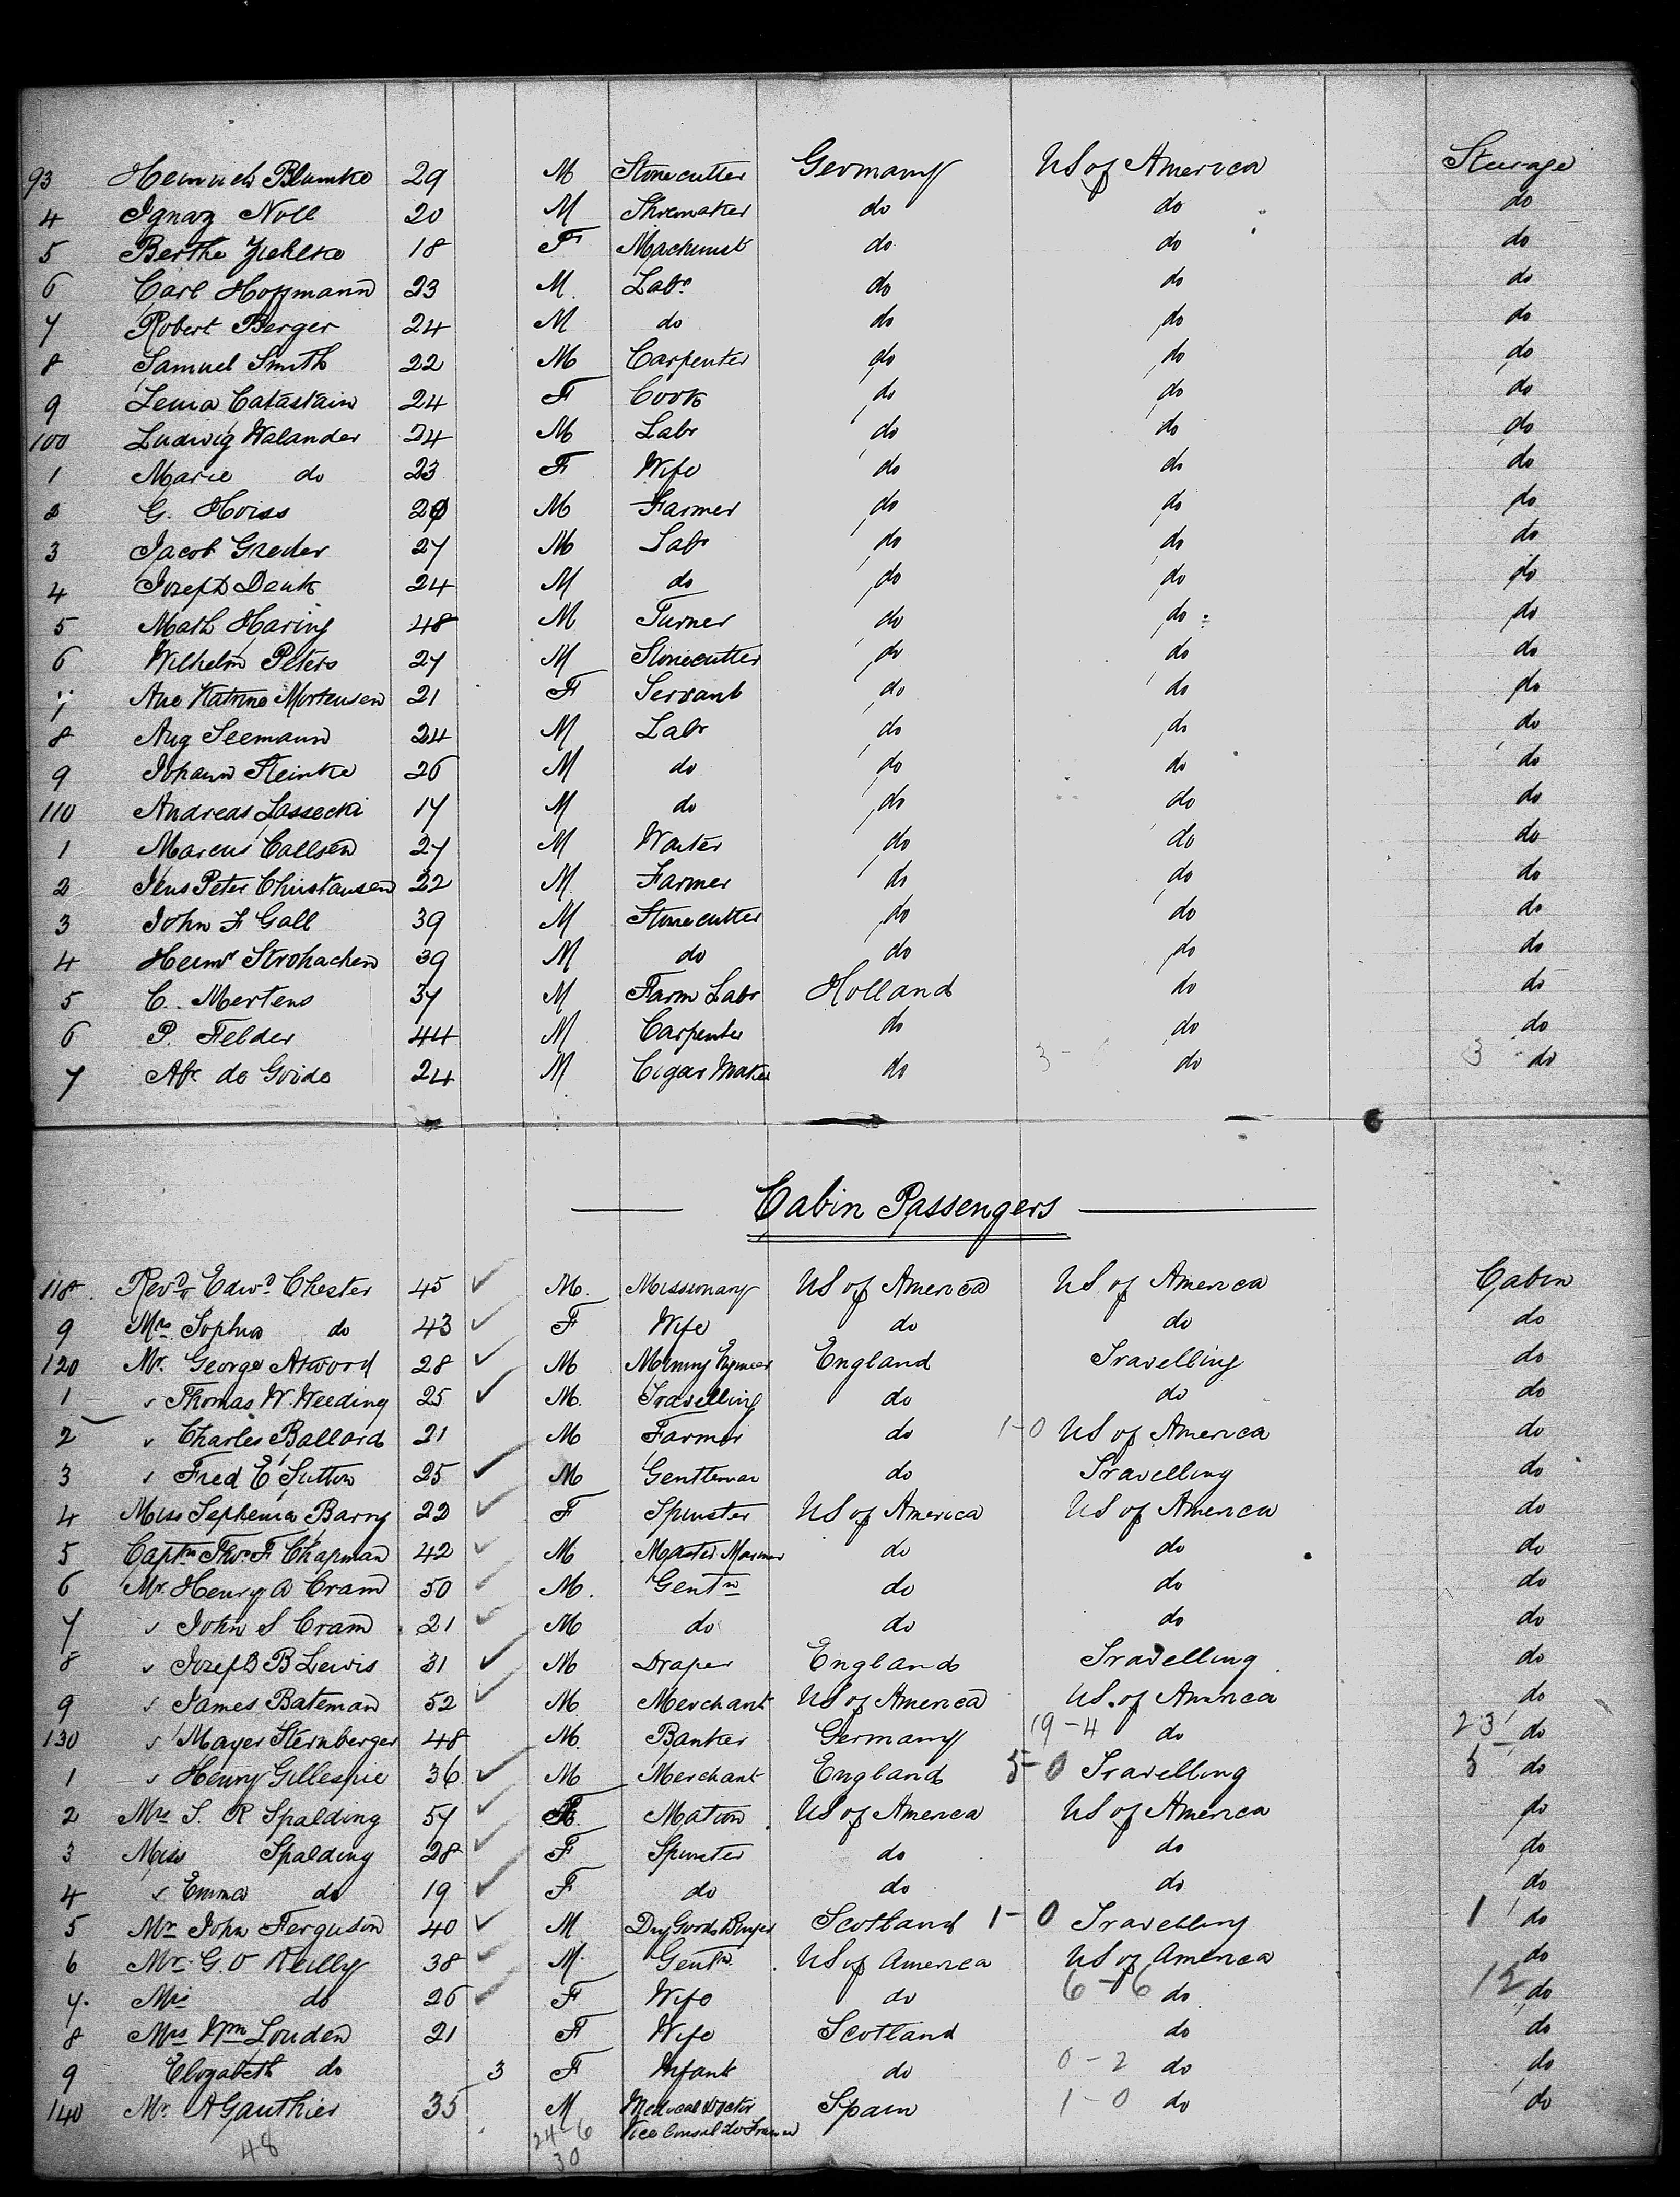 93 Heinrich Blumke 29 M Stonecutter Germany US of America Steerage
4 Ignaz Noll 20 M Shoemaker do do do
5 Berthe Ziehlke 18 F Machinist do do do
6 Carl Hoffmann 23 M Labr do do do
7 Robert Berger 24 M do do do do
8 Samuel Smith 22 M Carpenter do do do
9 24 F Cook do do do
100 Ludwig Walander 24 M Labr do do do
1 Marie do 23 F Wife do do do
2 G. Hoiss M Farmer do do do
3 Jacob Greder 27 M Labr do do do
4 Jozeph Denk 24 M do do do do
5 Math Haring 48 M Turner do do do
6 Wilhelm Peters 27 M Stonecutter do do do
7 Ane Katrine Mortensen 21 F Servant do do do
8 Aug Seemann 24 M Labr do do do
9 Johann Steinke 26 M do do do do
110 Andreas Lassecki 17 M do do do do
1 Marcus Callsen 27 M Waiter do do do
2 Jens Peter Christansen 22 M Farmer do do do
3 John F Gall 39 M Stonecutter do do do
4 Heinr Strohachen 39 M do do do do
5 C. Mertens 37 M Farm Labr Holland do do
6 P. Felder 44 M Carpenter do do do
7 Abr de Goide 24 M Cigar Maker do 3 - do 3 do
Cabin Passengers
118 Revd Edwd Chester 45 M. Missionary US of America US of America Cabin
9 Mrs Sophia do 43 F Wife do do do
120 Mr. George Atwood 28 M Mining Engineer England Travelling do
1 " Thomas W. Weeding 25 M. Travelling do do do
2 " Charles Ballard 21 M Farmer do 1-0 US of America do
3 " Fred E Sutton 25 M Gentleman do Travelling do
4 Miss Sephenia Barry 22 F Spinster US of America US of America do
5 Captn Thos F Chapman 42 M Master Mariner do do do
6 Mr. Henry A Cram 50 M. Gentn do do do
7 " John S Cram 21 M do do do do
8 " Jozeph B Lewis 31 M Draper England Travelling do
9 " James Bateman 52 M Merchant US of America US. of America do
130 " Mayer Sternberger 48 M. Banker Germany 19-4 do 23 do
1 " Henry Gillespie 36 M Merchant England 5-0 Travelling 5 do
2 Mrs S. R Spalding 57 F. Matron US of America US of America do
3 Miss Spalding 28 F Spinster do do do
4 " Emma do 19 F do do do do
5 Mr John Ferguson 40 M Dry Goods Buyer Scotland 1-0 Travelling 1 do
6 Mr. G. O Reilly 38 M. Gentn US of America US of America do
7. Mrs do 26 F Wife do 6-6 do 12 do
8 Mrs Wm Louden 21 F Wife Scotland do do
9 Elizabeth do 3 F Infant do 0-2 do do
140 Mr A Gauthier 35 M Medical Doctor Spain 1-0 do do
48 24-6 Vice Consul do France
30